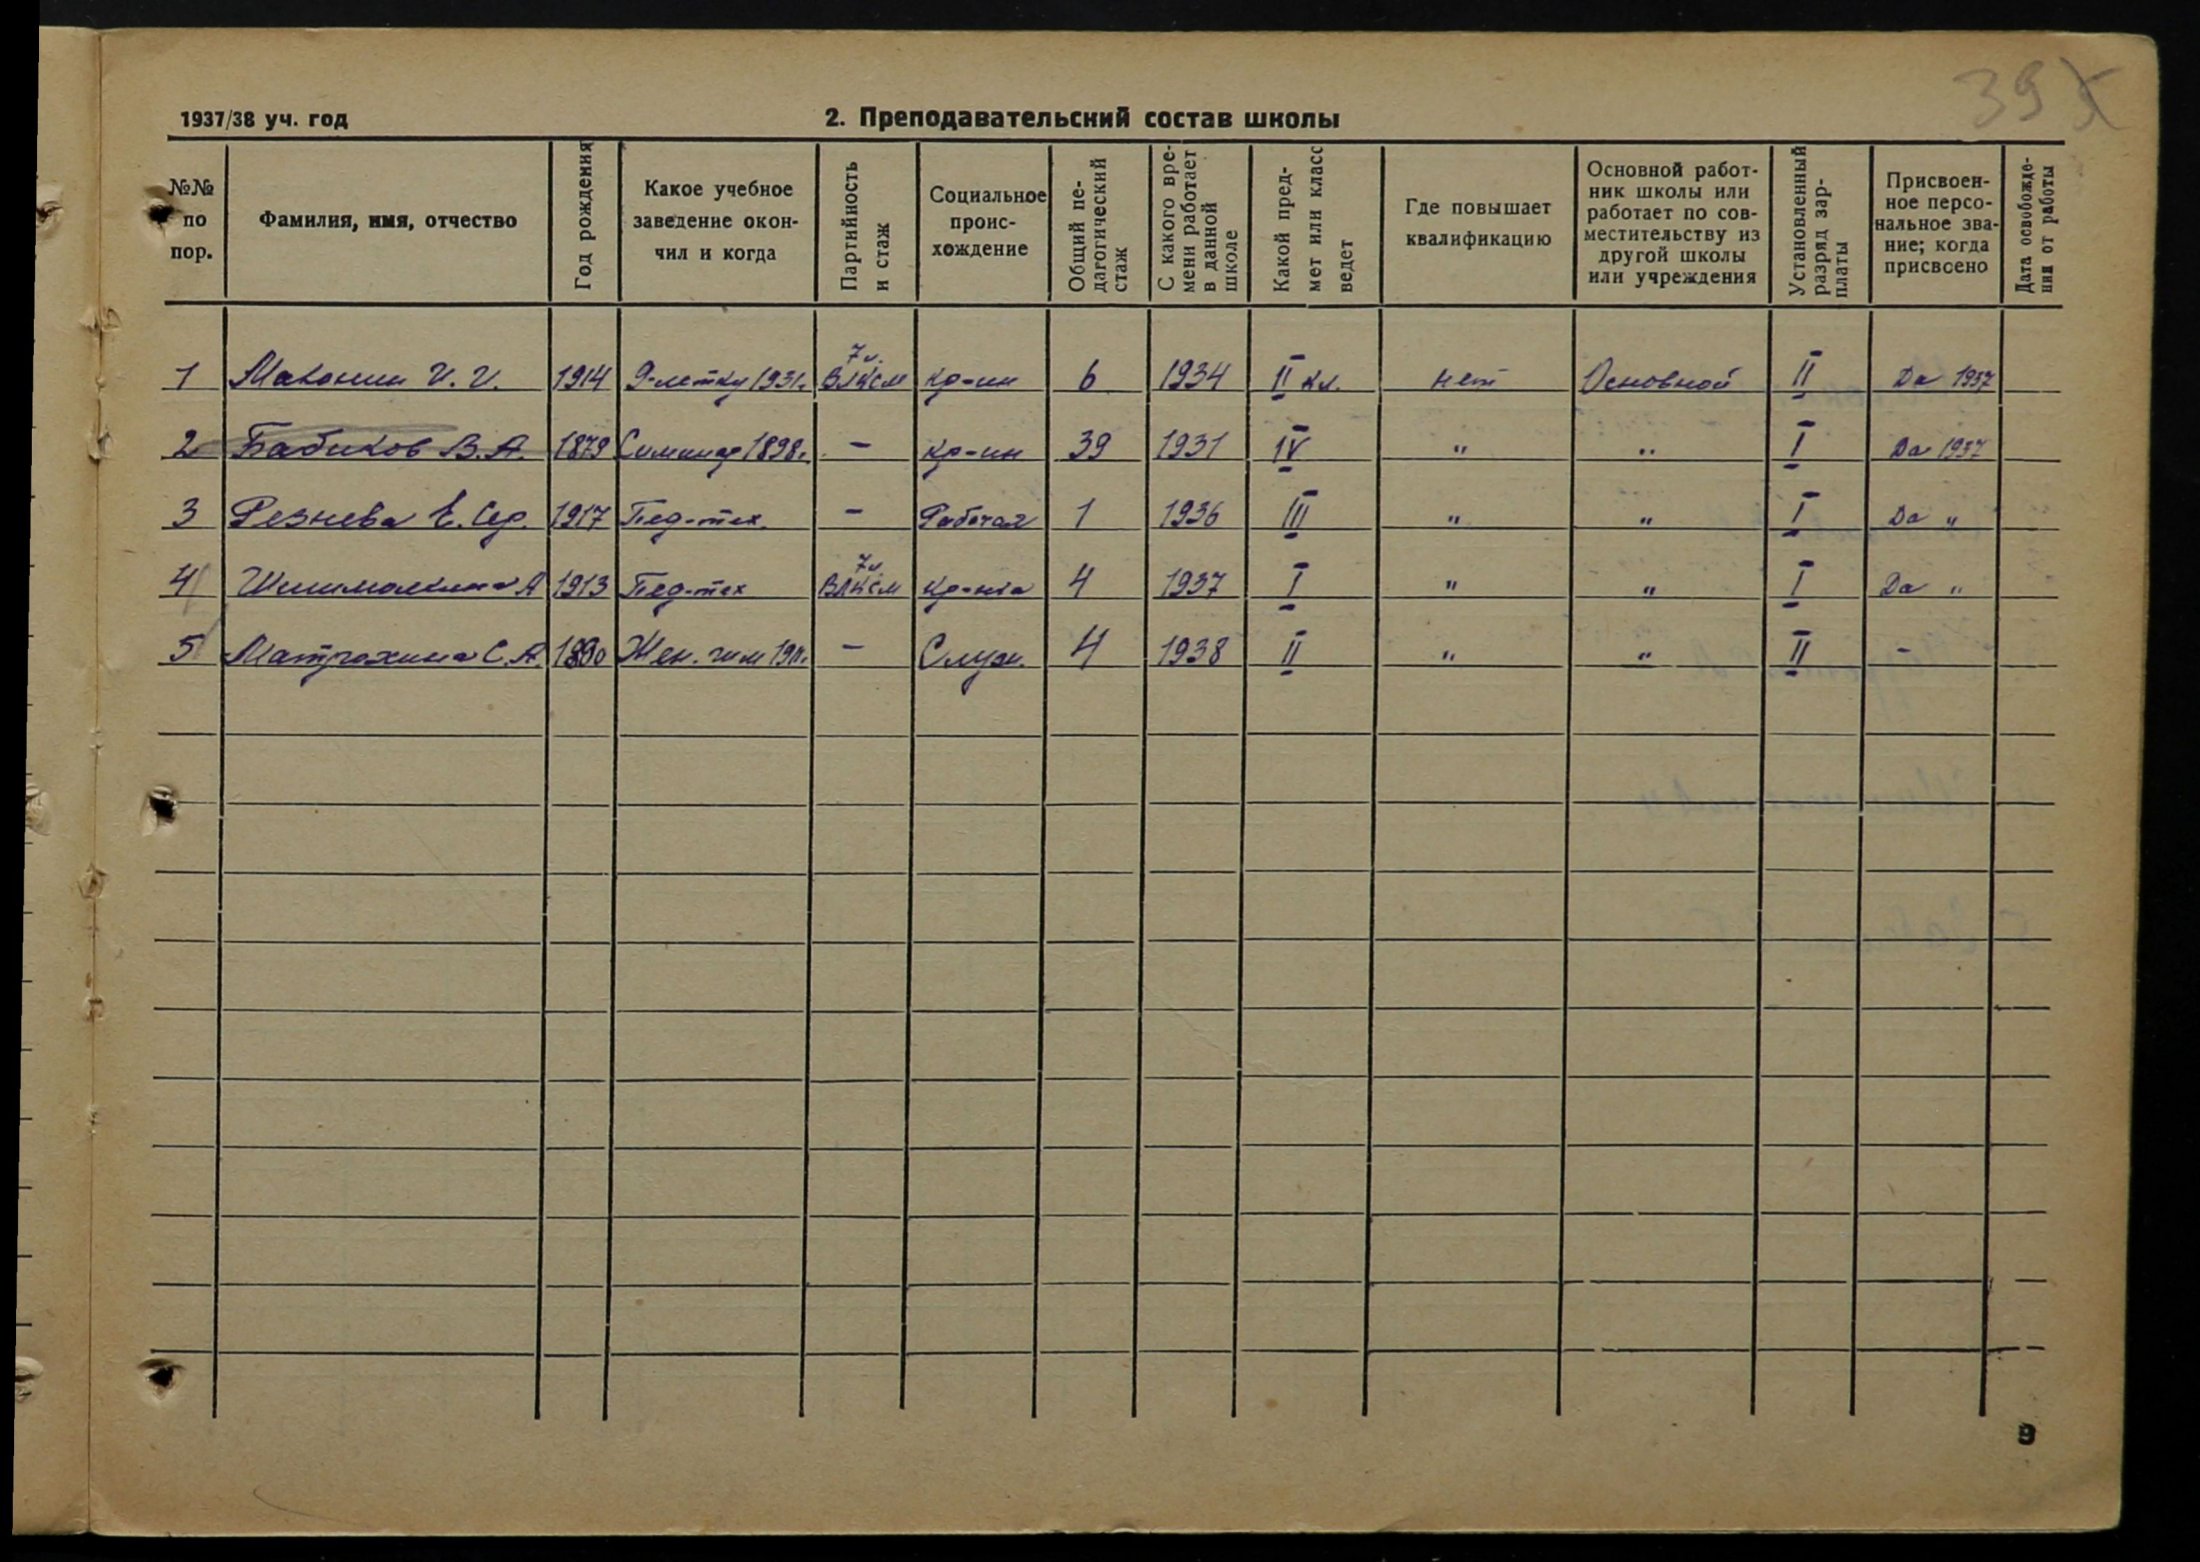 39
1937/38 уч. год
2. Преподавательский состав школы
№№ по пор.
Фамилия, имя, отчество
Год рождения
Какое учебное заведение окончил и когда
Партийность и стаж
Социальное происхождение
Общий педагогический стаж
С какого времени работает в данной школе
Какой предмет или класс ведет
Где повышает квалификацию
Основной работник школы или работает по совместительству из другой школы или учреждения
Установленный разряд зарплаты
Присвоенное персональное звание; когда присвоено
Дата освобождения от работы
1 Маконин И. И. 1914 9-летку 1931г. ВЛКСМ кр-ин 6 1934 II кл. нет Основной II Да 1937
2 Бабиков В. А. 1879 1898г. – кр-ин 39 1931 IV " " I Да 1937
3 Резнева Е. Сер. 1917 Пед-тех. – Рабочая 1 1936 III " " I Да "
4 А 1913 Пед-тех ВЛКСМ кр-нка 4 1937 I " " I Да "
5 Матрохина С. А. Жен. гим – Служ. 4 1938 II " " II –
9